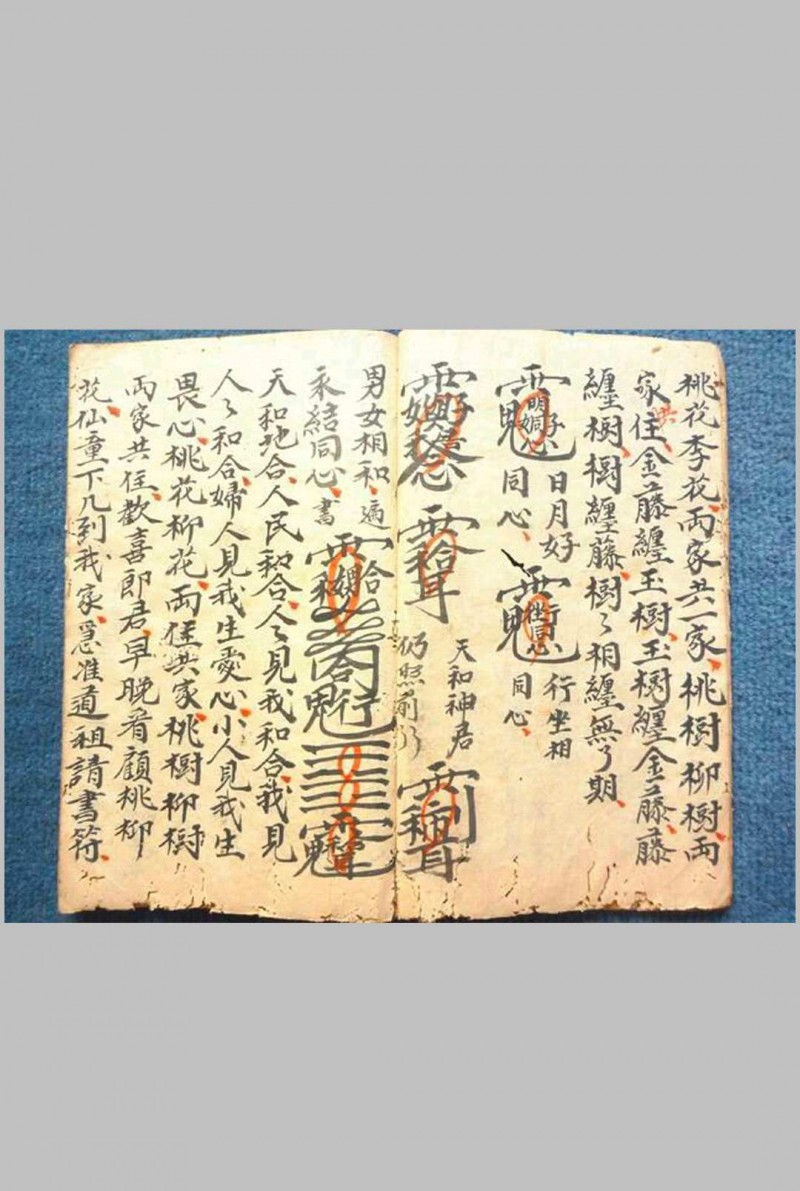 桃花李花、両家共一家、桃樹柳樹、両
家共住、金藤纏玉樹、玉樹纏金藤、藤
纏樹、樹纏藤、樹々相纏無了期、
日月好
同心、
行坐相
同心、
天和神君
仍照前
男女相和、遍
永結同心、書
天和地合、人民和合、人々見我和合、我見
人々和合、婦人見我生愛心、小人見我生
畏心、桃花柳花、両住共家、桃樹柳樹
両家共住、歓喜郎君、早晩看顧、桃柳
花仙童下凡到我家、急准道祖請書符、